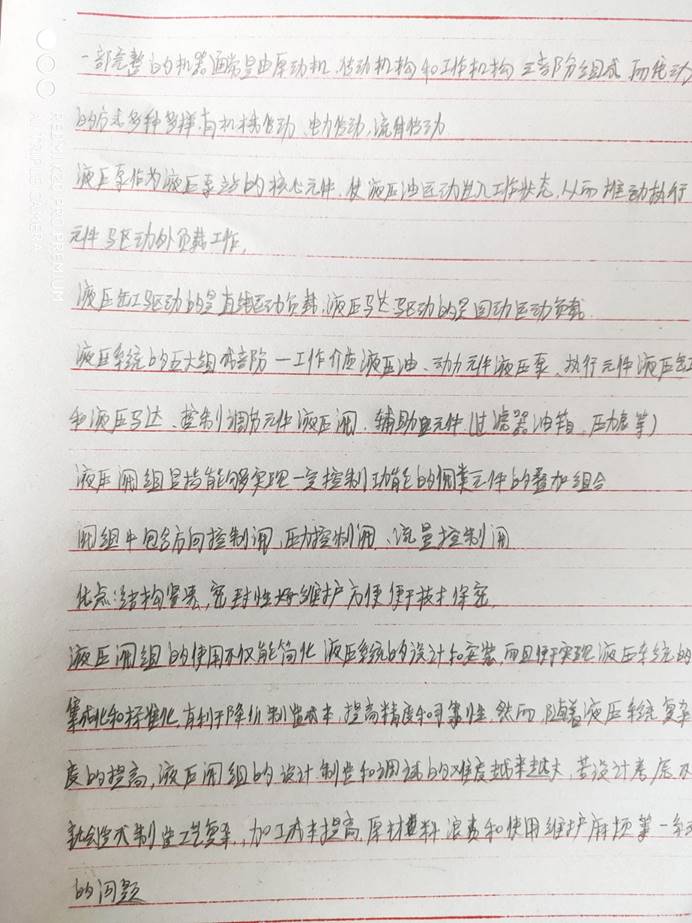 一部完整的机器通常是由原动机、传动机构和工作机构三部份组成 而传动
的方式多种多样，有机械传动、电力传动，流体传动
液压泵作为液压泵站的核心元件，使液压油运动进入工作状态，从而推动执行
元件驱动外负载工作。
液压缸驱动的是直线运动负载，液压马达驱动的是回动运动负载
液压系统的五大组成部份一工作介质液压油、动力元件液压泵、执行元件液压缸
和液压马达、控制调节元件液压阀、辅助元件（过滤器油箱、压力表等）
液压阀组是指能够实现一定控制功能的阀类元件的叠加组合
阀组中包含方向控制阀，压力控制阀、流量控制阀
优点：结构紧凑，密封性好维护方便便于技术保密，
液压阀组的使用不仅能简化液压系统的设计和安装，而且便于实现液压系统的
集成化和标准化，有利于降低制造成本，提高精度和可靠性，然而，随着液压系统复杂
度的提高，液压阀组的设计制造和调试的难度越来越大，若设计考虑不
就会造成制造工艺复杂，加工成本提高，原材料浪费和使用维护麻烦等一系
的问题
REDMI K20 PRO PREMIUM
AI TRIPLE CAMERA